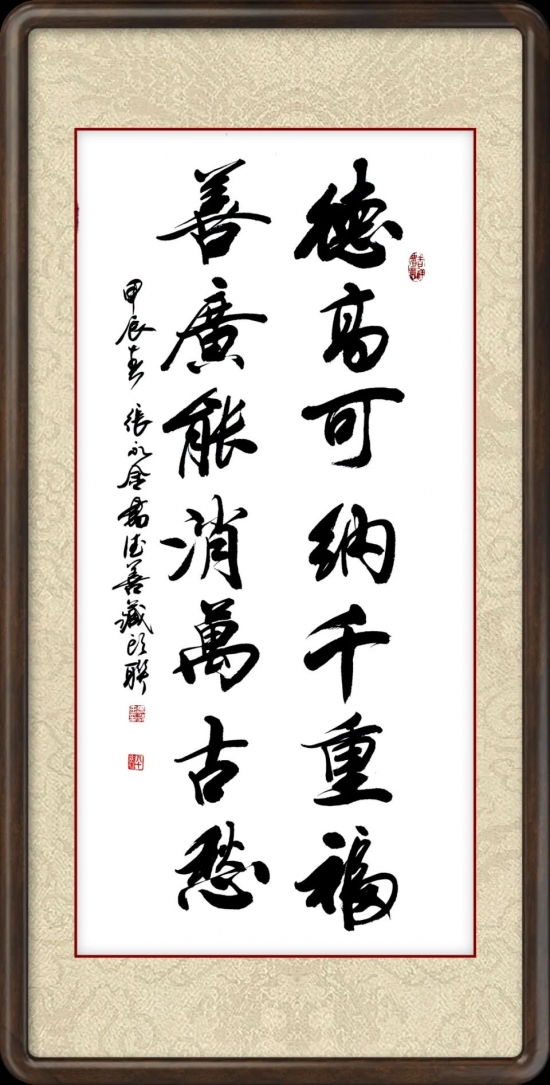 德高可纳千重福
善廣能消萬古愁
甲辰春 張永金書德善藏头聯